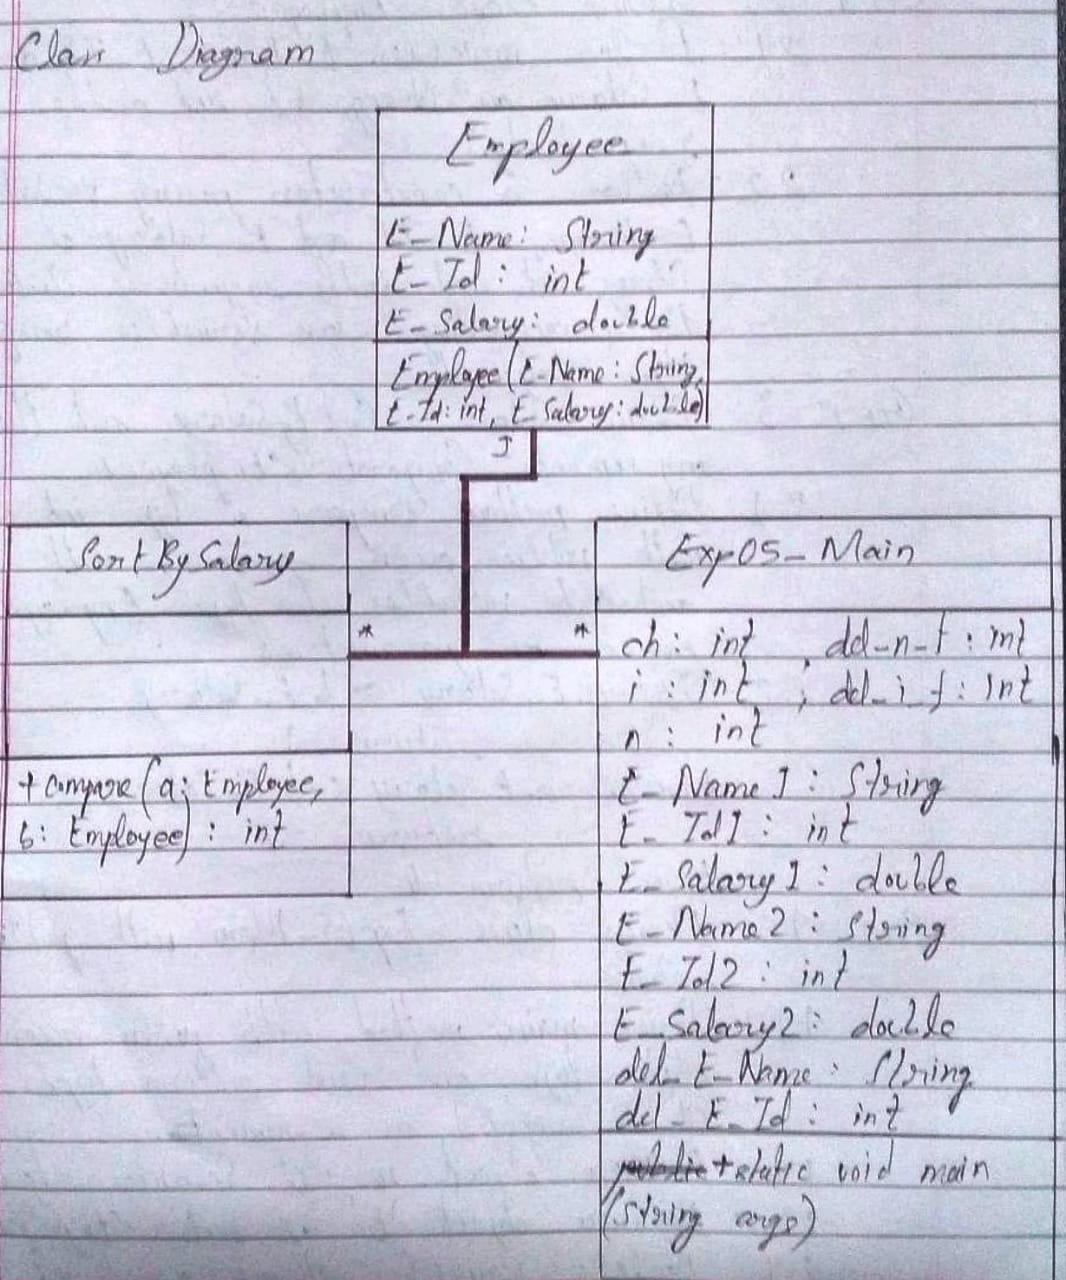 Class Diagram
Employee
E_Name: String
E_Id: int
E_Salary: double
Employee(E_Name: String,
E_Id: int, E_Salary: double)
1
SortBySalary
*
+ compare (a: Employee,
b: Employee) : int
Exp05_Main
*
ch: int , del_n_f: int
i : int , del_i_f: int
n : int
E_Name1: String
E_Id1: int
E_Salary1: double
E_Name2: String
E_Id2: int
E_Salary2: double
del_E_Name: String
del_E_Id: int
public + static void main
(String args)